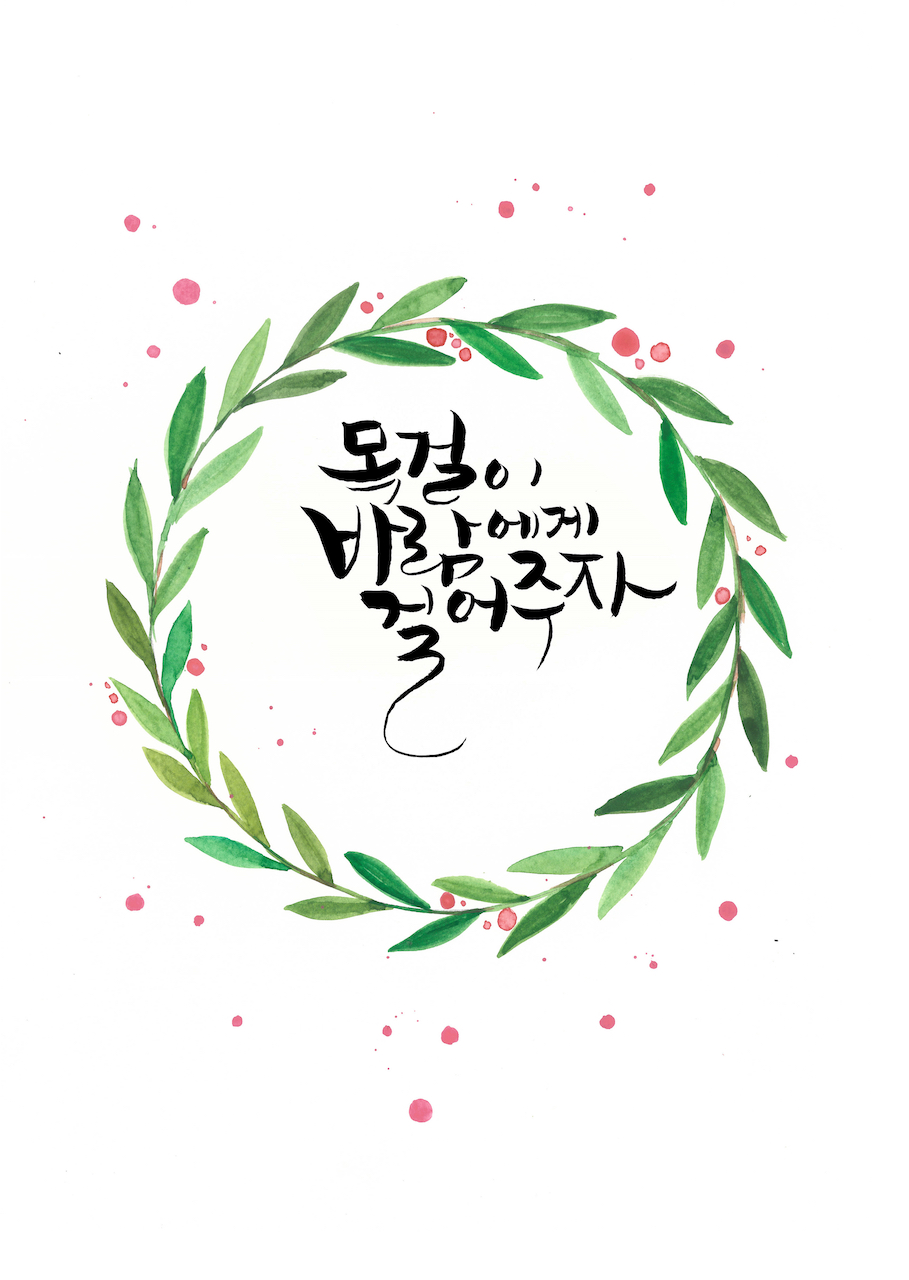 목걸이
바람에게
걸어주자